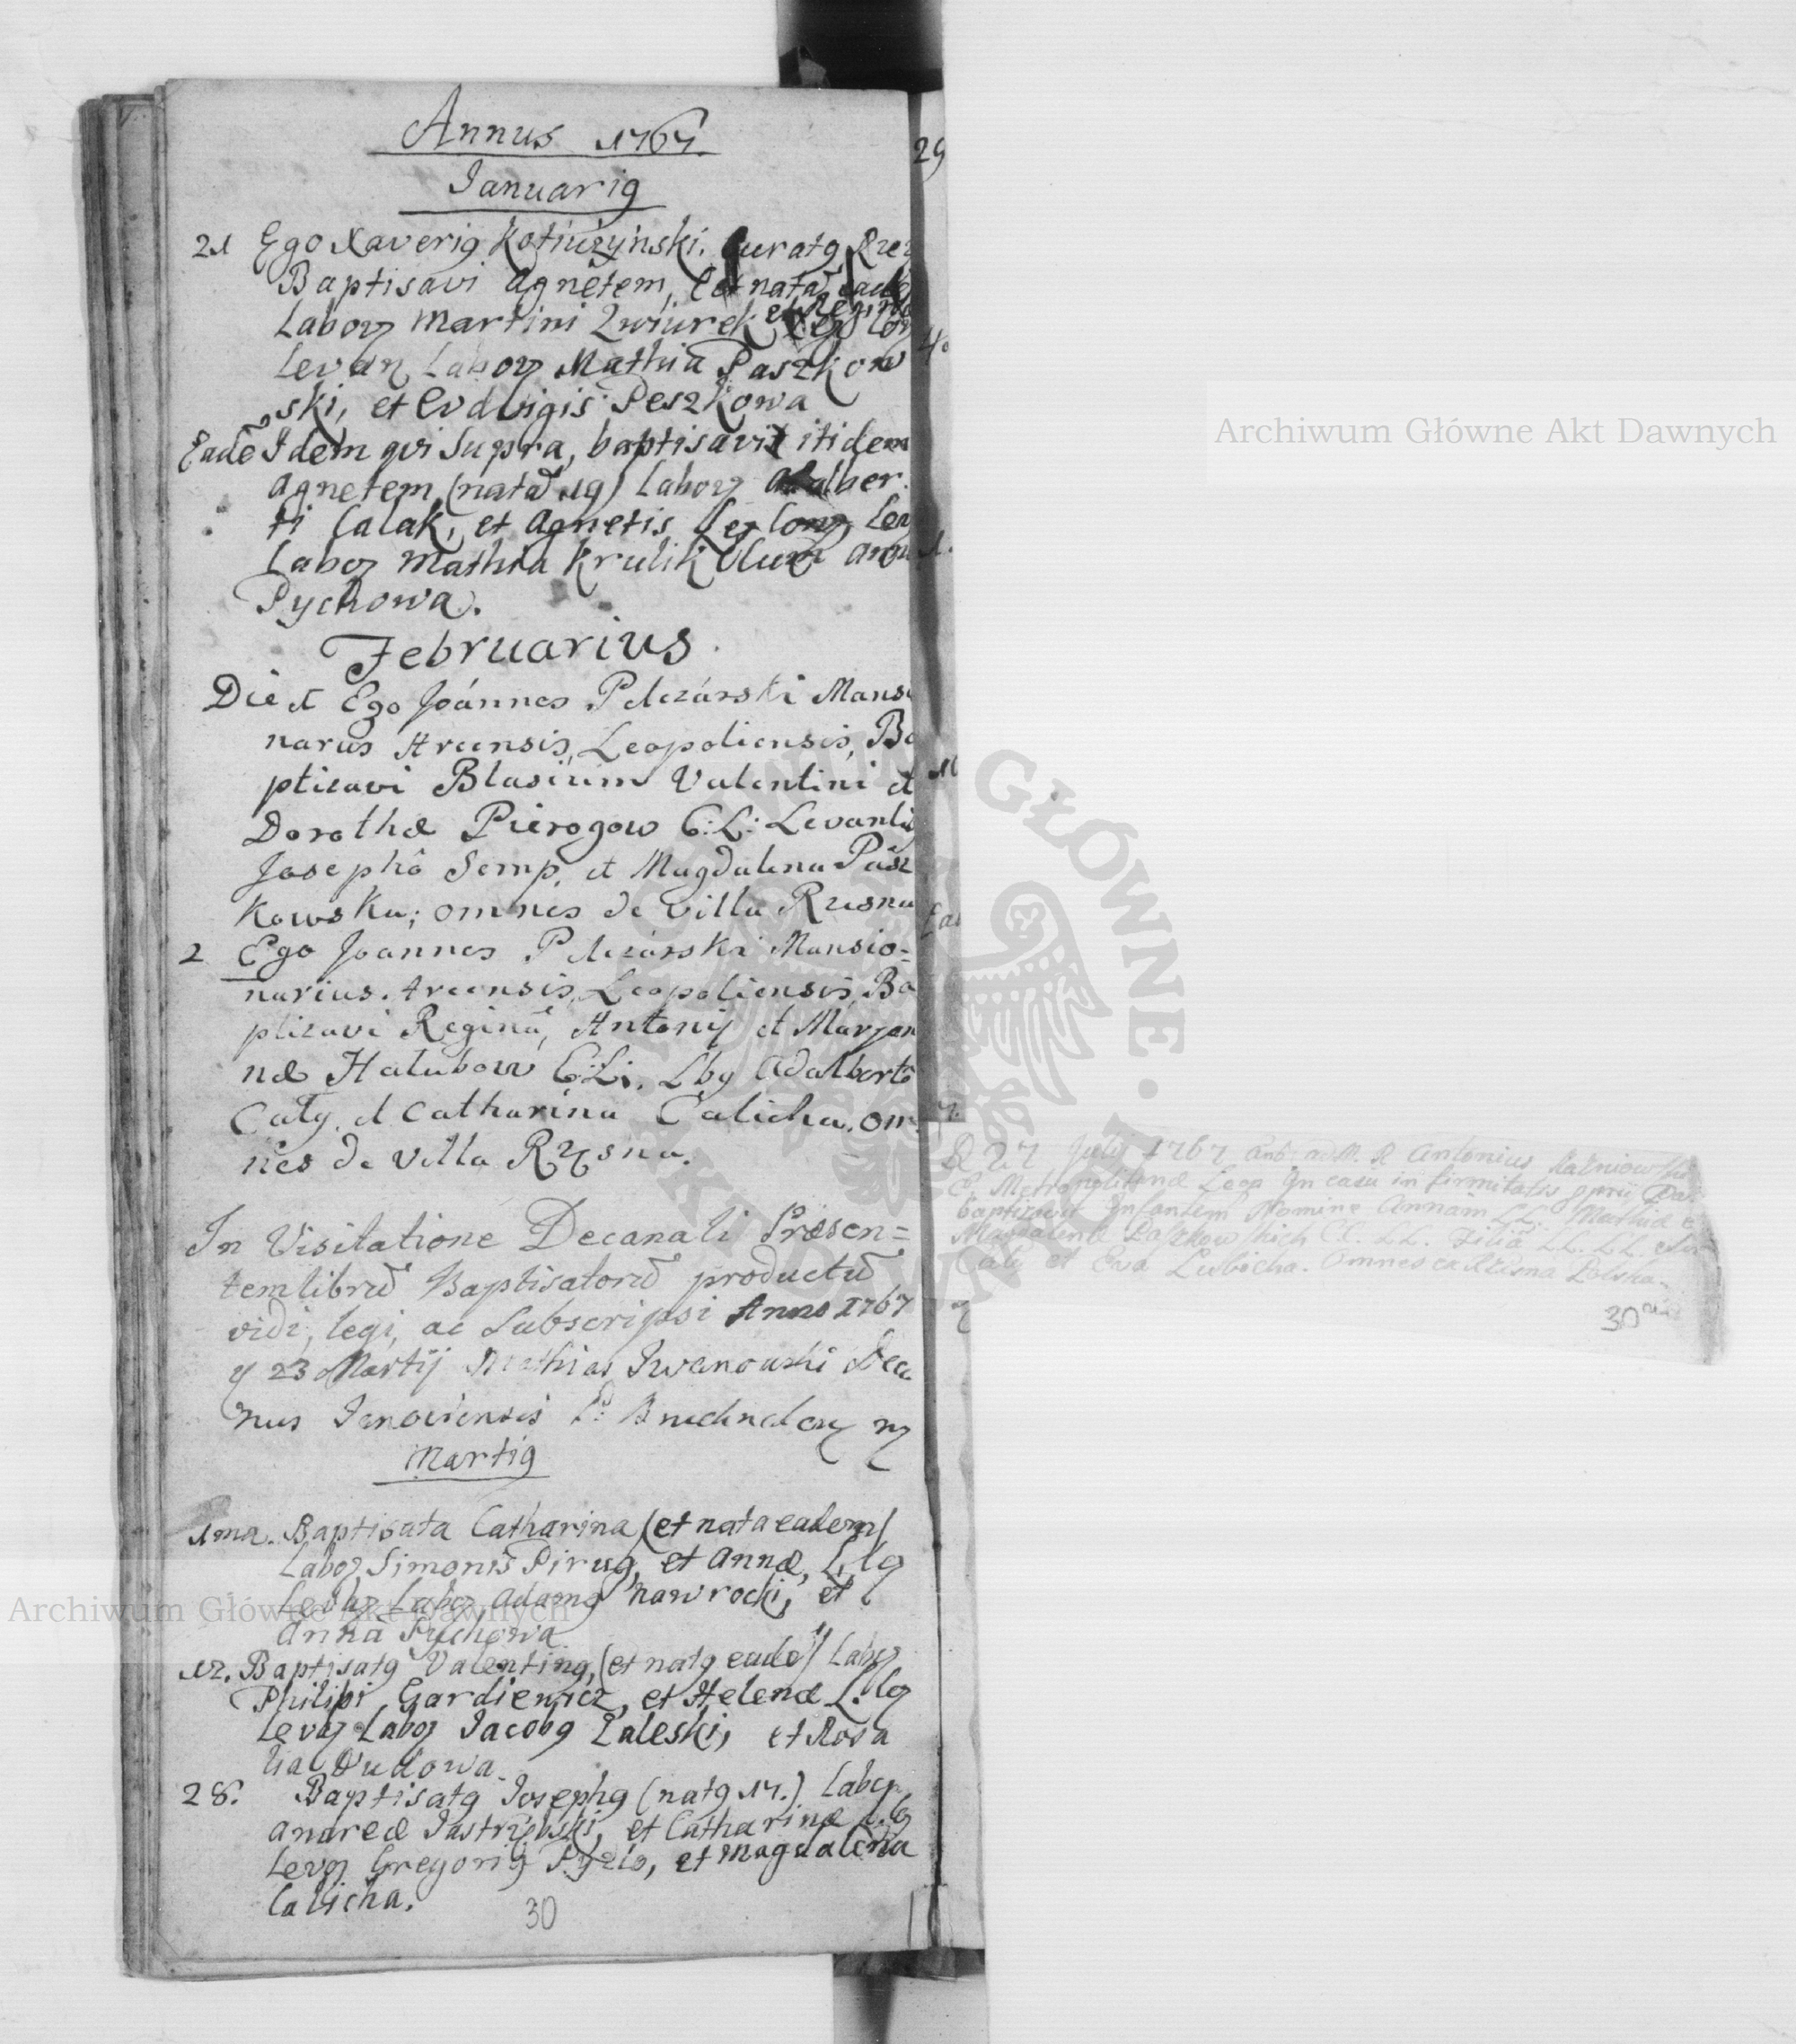 Annus 1767.
Januarig
21 Ego Xaverig Kotiużyński. Curatg Rzez
Baptisavi Agnetem, (et natã eadẽ
Labor Martini Zwiurek et Regina
Levan Labor Mathia Paszkow
ski, et Evdvigis Peszkowa
Eadẽ Idem qvi Supra, baptisavit itidem
Agnetem (natã 19) Labor Adalber
ti Calak, et Agnetis Leg Conj Lev
Labor Mathia Krulik Anna
Pychowa.
Februarius.
Die 1 Ego Joánnes Pelczárski Mansi
narus Arcensis Leopoliensis, Ba
ptizavi Blasium Valentini et
Dorothæ Pierogow C: L: Levantib
Josephô Semp, et Magdalena Pász
kowska; omnes de Villa Rzesna
2 Ego Joannes Pelczárski Mansio=
narius. Arcensis, Leopoliensis, Ba
ptizavi Reginã, Antonij et Maryan
næ Hałubow C:L:. Lbg Adalbertô
Całg. et Catharina Calicha. om
nes de Villa Rzesna.
In Visitatione Decanali Præsen=
tem librũ Baptisatorũ productũ
vidi, legi, ac Subscripsi Anno 1767
23 Martij Mathias Iwanowski Deca
nus Janoviensis
Martig
1ma. Baptisata Catharina (et nata eadem)
Labor Simonis Pirug, et Annæ, L. Cg
Levbg Labor Adamg Nawrocki, et
Anna Pychowa
12. Baptisatg Valenting, (et natg eadẽ) Labor
Philipi Gardiewicz, et Helenæ L. Cg
Levbg Labor Jacobg Zaleski, et Rosa
lia Dudowa
28. Baptisatg Josephg (natg 17.) Labor
Andreæ Jastrzębski, et Catharinæ L. Cg
Levbg Gregorig Pyzio, et Magdalena
Calicha.
30
29
D 27 July 1767 Antonius
Metropolitanæ Leop in casu infirmitatis
baptizavit Infantem Nomine Annam LL. Mathiæ e
Magdalenæ Paszkowskich CC. LL. Filiã LL. LL.
Cały et Eva Lubicha. Omnes ex Rzesna Polska
30
Archiwum Główne Akt Dawnych
Archiwum Główne Akt Dawnych
ARCHIWUM GŁÓWNE AKT DAWNYCH